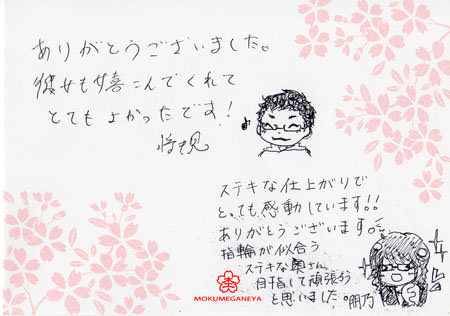 ありがとうございました。
彼女も嬉こんでくれて
とてもよかったです!
将視
ステキな仕上がりで
とっても感動しています!!
ありがとうございます。
指輪が似合う
ステキな奥さん
目指して頑張ろう
と思いました。朋乃
MOKUMEGANEYA